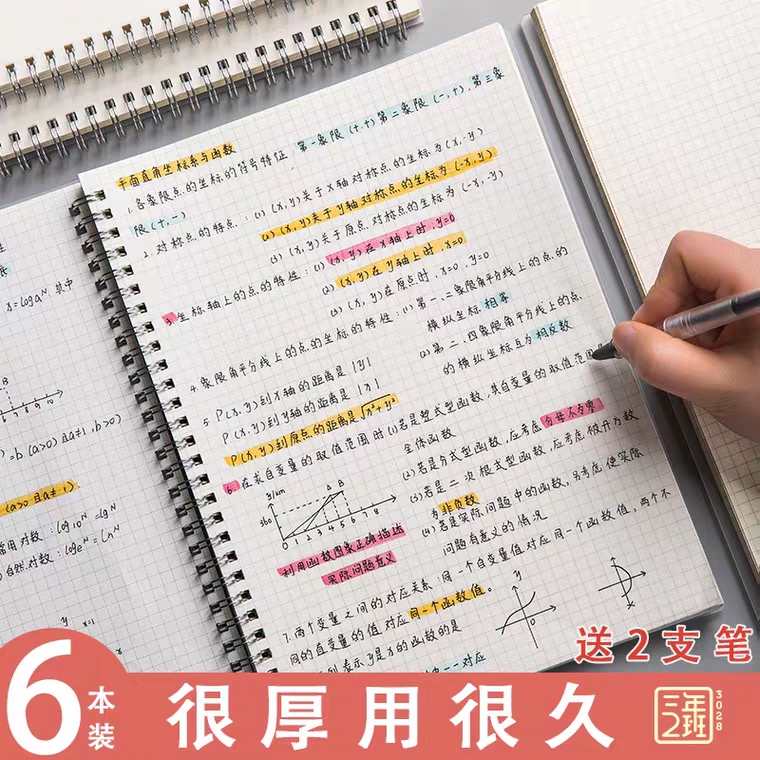 平面直角坐标系与函数
1.各象限点的坐标的符号特征:第一象限(+,+)第二象限(-,+).第三象
限(+,-)
2.对称点的特点:(1)(x,y)关于x轴对称点的坐标为(x,-y)
(2)(x,y)关于y轴对称点的坐标为(-x,y)
(3)(x,y)关于原点对称点的坐标为(-x,-y)
3.坐标轴上的点的特性:(1)(x,y)在x轴上时,y=0
(2)(x,y)在y轴上时,x=0
(3)(x,y)在原点时,x=0,y=0
4.象限角平分线上的点的坐标的特性:(1)第一、三象限角平分线上的点的
横纵坐标相等
(2)第二、四象限角平分线上的点
的横纵坐标互为相反数
5.P(x,y)到x轴的距离是|y|
P(x,y)到y轴的距离是|x|
P(x,y)到原点的距离是√x²+y²
6.在求自变量的取值范围时(1)若是整式型函数,其自变量的取值范围是
全体函数
(2)若是分式型函数,应考虑分母不为零
(3)若是二次根式型函数,应考虑被开方数
为非负数
(4)若是实际问题中的函数,另考虑使实际
问题有意义的情况
y/km
A B
360
0 1 2 3 4 5 6 7 8
利用函数图象正确描述
实际问题意义
7.两个变量之间的对应关系:同一个自变量值对应同一个函数值,两个不
同的自变量的值对应同一个函数值。
表示y是x的函数的是
一一对应
y
0
x
x=logaN 其中
=b(a>0且a≠1,b>0)
(a>0且a≠1)
常用对数:log10N=lgN
自然对数:logeN=lnN
送2支笔
6本装
很厚用很久
三年2班
3028